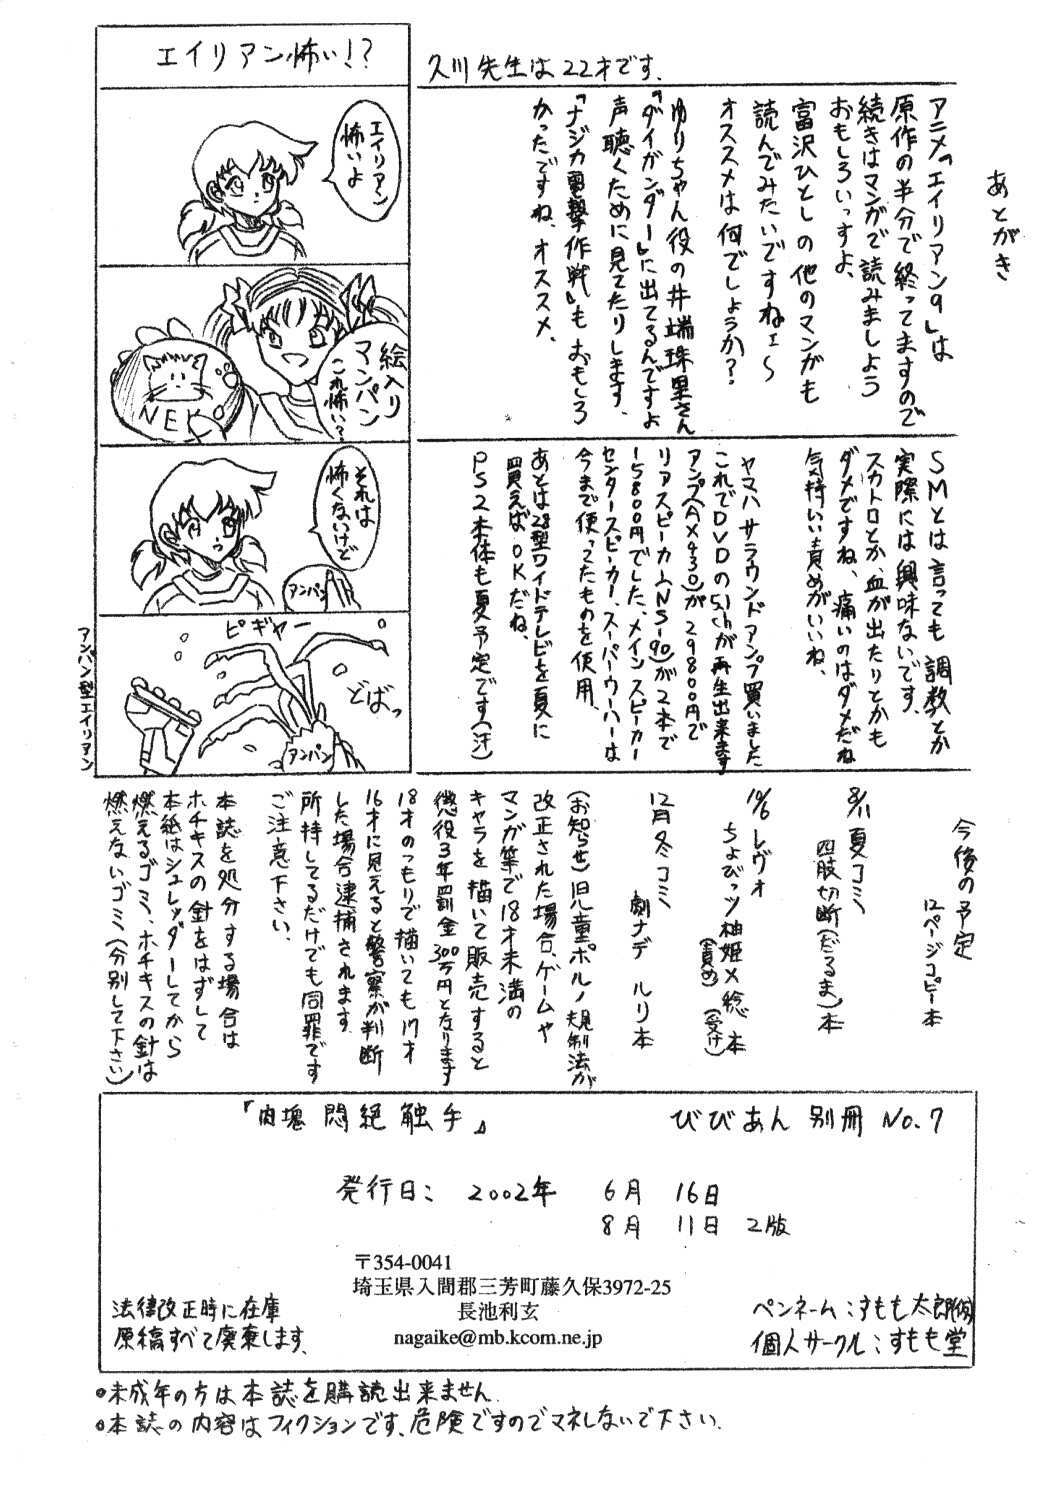 エイリアン怖い!?
エイリアン
怖いよ
絵入り
マンパン
これ怖い?
NEK
それは
怖くないけど
アンパン
ピギャー
どばっ
アンパン
アンパン型エイリアン
久川先生は22才です.
あとがき
アニメ「エイリアン9」は
原作の半分で終ってますので
続きはマンガで読みましよう
おもしろいっすよ、
富沢ひとしの他のマンガも
読んでみたいですねェ〜
オススメは何でしょうか?
ゆりちゃん役の井端珠里さん
「ダイガンダー」に出てるんですよ
声聴くために見てたりします、
「ナジカ電撃作戦」もおもしろ
かったですね、オススメ、
SMとは言っても調教とか
実際には興味ないです。
スカトロとか、血が出たりとかも
ダメですね、痛いのはダメだね
気持いい責めがいいね、
ヤマハサラウンドアンプ買いました
これでDVDの5.1chが再生出来ます
アンプ(AX430)が29800円で
リアスピーカー(NS-90)が2本で
15800円でした、メインスピーカー
センタースピーカー、スーパーウーハーは
今まで使ってたものを使用、
あとは28型ワイドテレビを夏に
買えばOKだね、
PS2本体も夏予定です(汗)
今後の予定
12ページコピー本
8/11夏コミ
四肢切断(だるま)本
10/6レヴォ
ちょびっツ柚姫×稔本
(責め)(受け)
12月冬コミ
劇ナデ ルリ本
(お知らせ)児童ポルノ規制法が
改正された場合、ゲームや
マンガ等で18才未満の
キャラを描いて販売すると
懲役3年罰金300万円となります
18才のつもりで描いても17才
16才に見えると警察が判断
した場合逮捕されます
所持してるだけでも同罪です
ご注意下さい、
本誌を処分する場合は
ホチキスの針をはずして
本紙はシュレッダーしてから
燃えるゴミ、ホチキスの針は
燃えないゴミ(分別して下さい)
『肉塊 悶絶 触手』 びびあん 別冊 No.7
発行日: 2002年 6月 16日
8月 11日 2版
〒354-0041
埼玉県入間郡三芳町藤久保3972-25
長池利玄
nagaike@mb.kcom.ne.jp
法律改正時に在庫
原稿すべて廃棄します、
ペンネーム:すもも太郎(仮)
個人サークル:すもも堂
●未成年の方は本誌を購読出来ません.
●本誌の内容はフィクションです、危険ですのでマネしないで下さい.